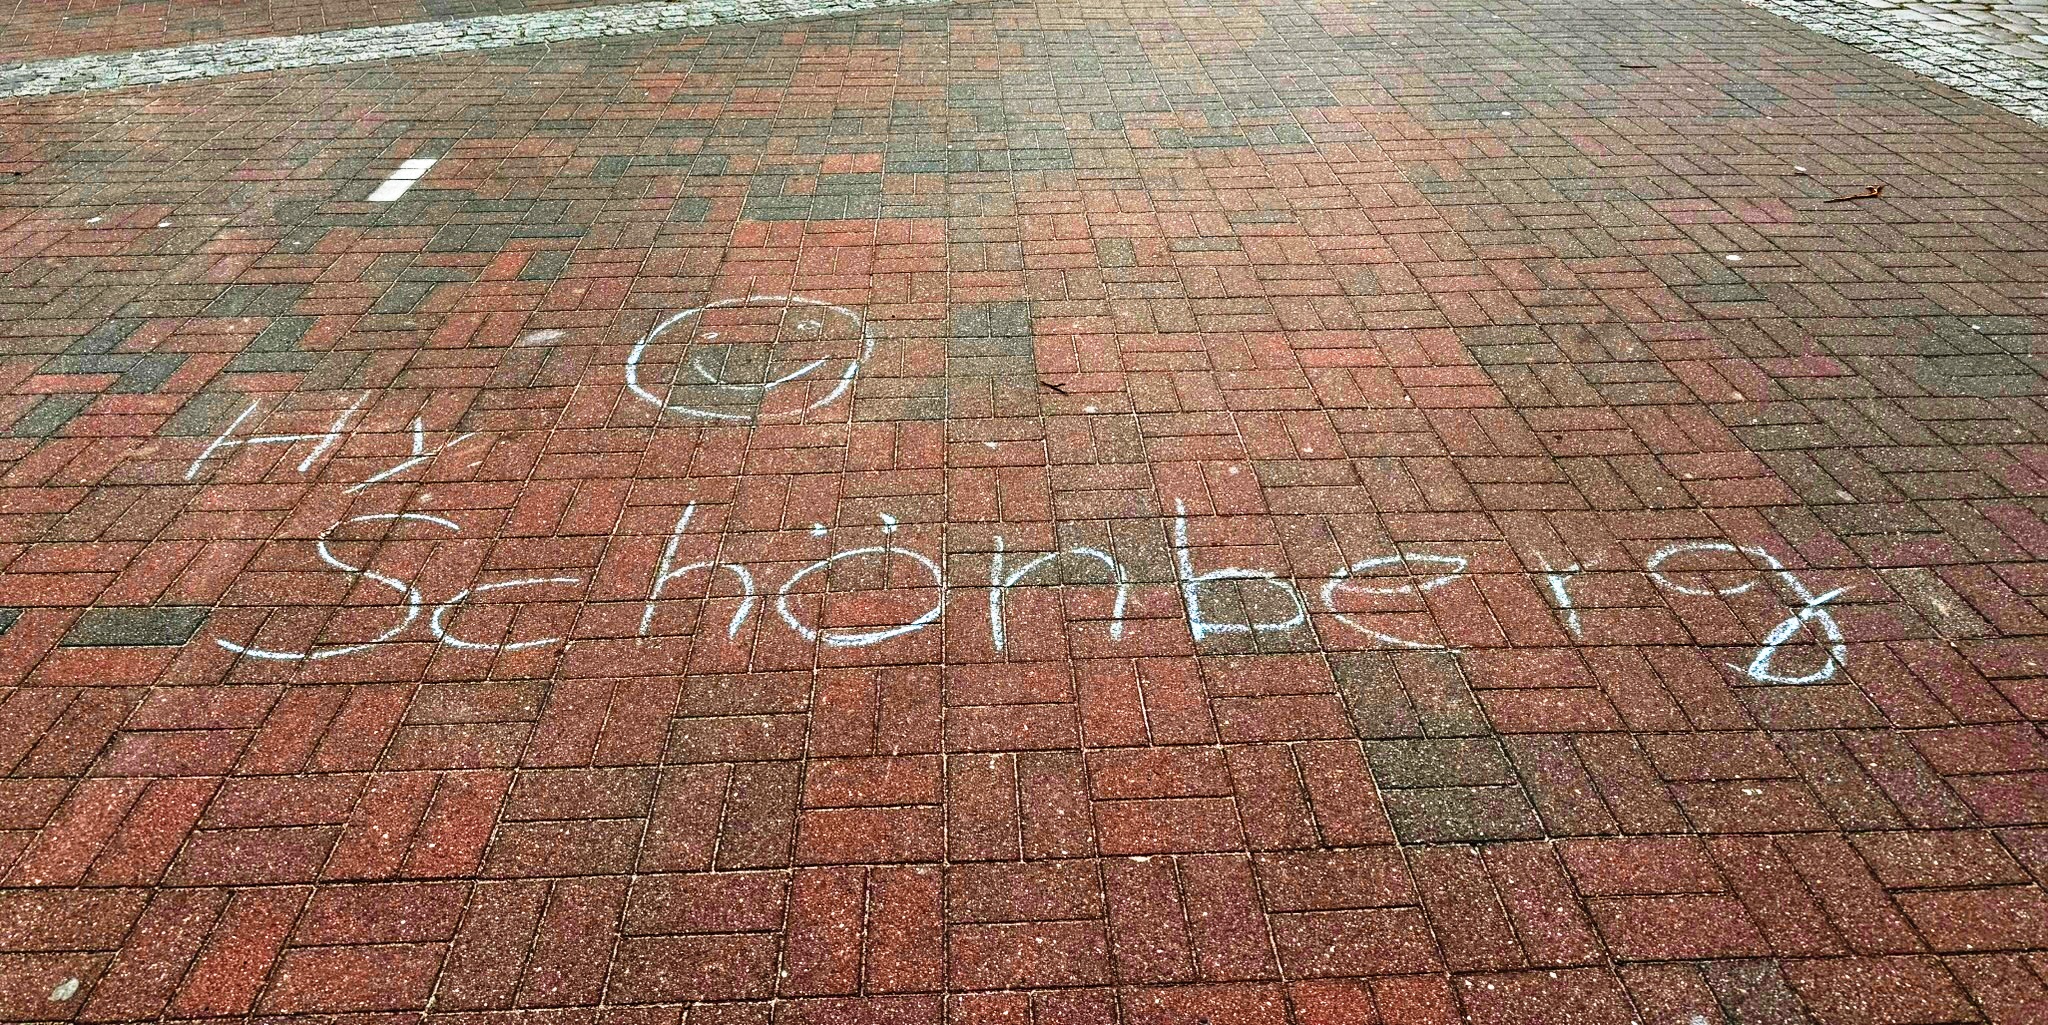 Hy
Schönberg